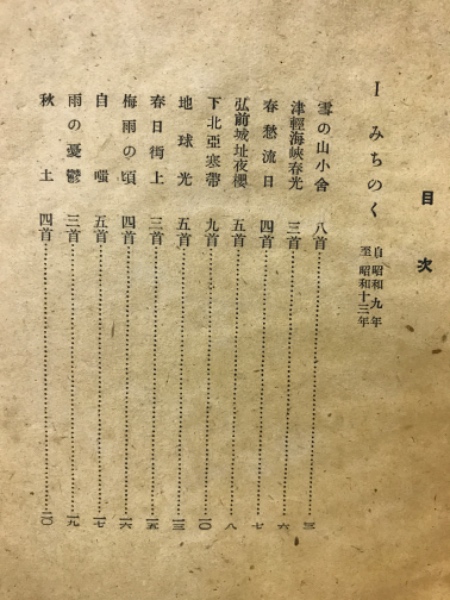 目次
Ⅰ みちのく 自昭和九年 至昭和十三年
雪の山小舍 八首……三
津輕海峽春光 三首……六
春愁流日 四首……七
弘前城址夜櫻 五首……八
下北亞寒帶 九首……一〇
地球光 五首……一三
春日街上 三首……一五
梅雨の頃 四首……一六
自嗤 五首……一七
雨の憂鬱 三首……一九
秋土 四首……二〇